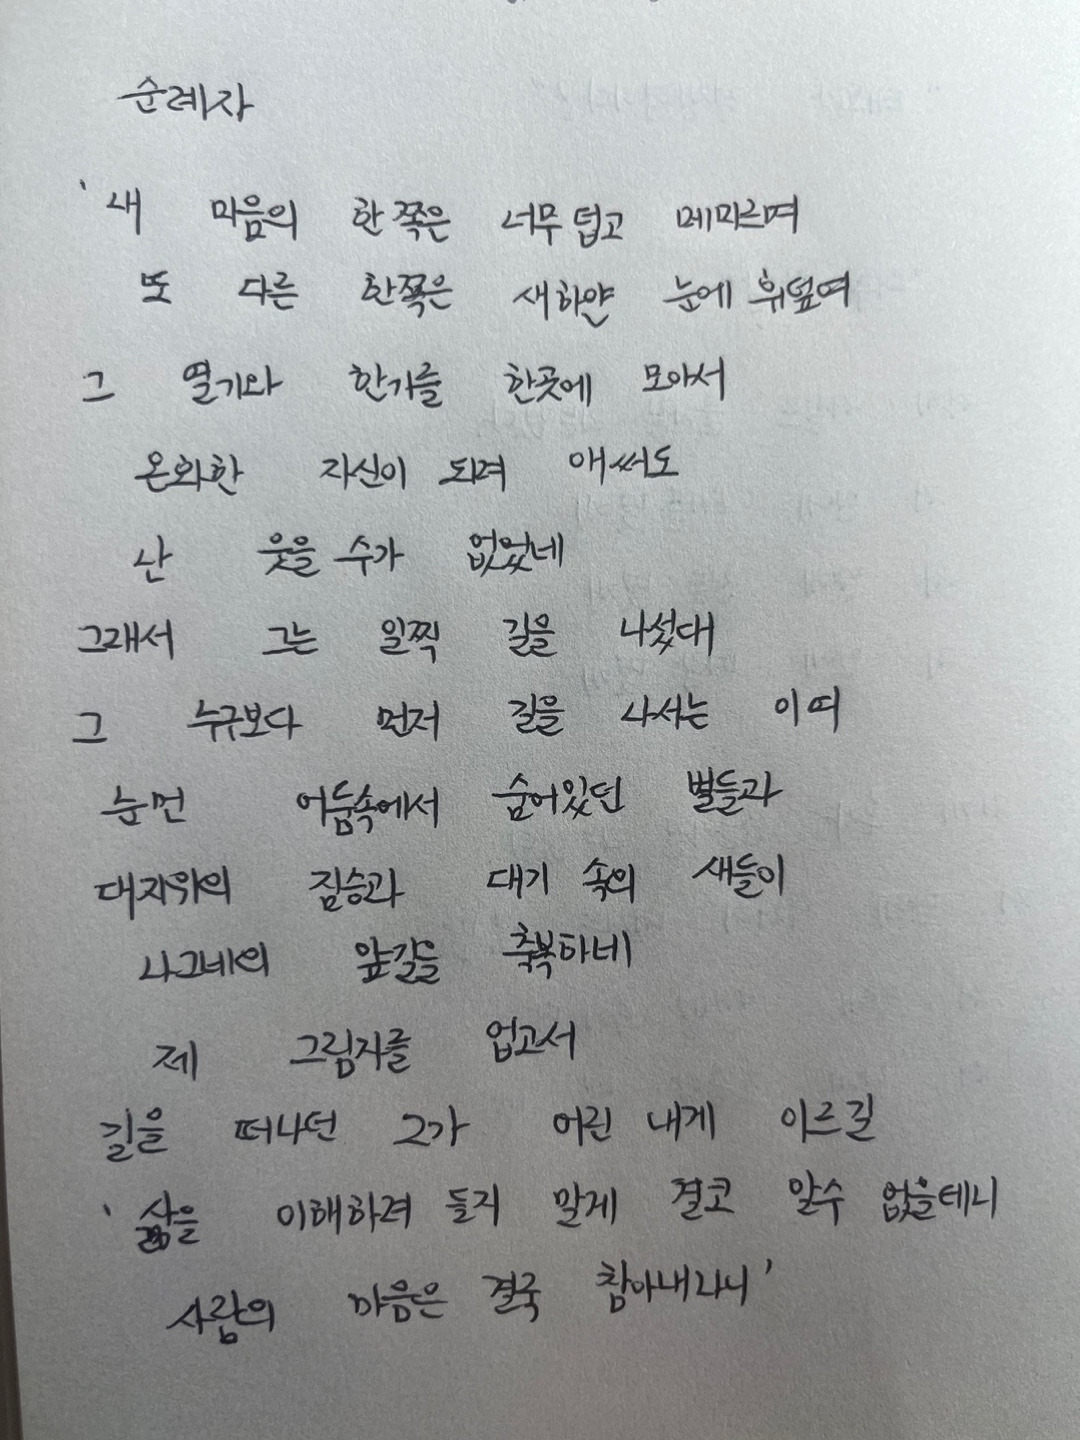 순례자
'새 마음의 한쪽은 너무 덥고 메마르며
또 다른 한쪽은 새하얀 눈에 휘덮여
그 열기와 한기를 한곳에 모아서
온화한 자신이 되려 애써도
난 웃을 수가 없었네
그래서 그는 일찍 길을 나섰대
그 누구보다 먼저 길을 나서는 이 떠
눈먼 어둠속에서 숨어있던 별들과
대지위의 짐승과 대기 속의 새들이
나그네의 앞길을 축복하네
제 그림자를 업고서
길을 떠나던 그가 어린 내게 이르길
'삶을 이해하려 들지 말게 결코 알수 없을테니
사람의 마음은 결국 참아내나니'